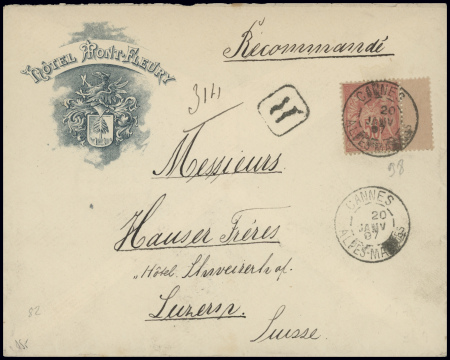 HÔTEL MONT-FLEURY
Recommandé
314
R
CANNES
20
JANV
97
ALPES-MARITIMES
98
Messieurs
CANNES
1 20
JANV
97
ALPES-MARITIMES
Hauser Frères
"Hôtel Schweizerhof.
Luzern.
Suisse.
82